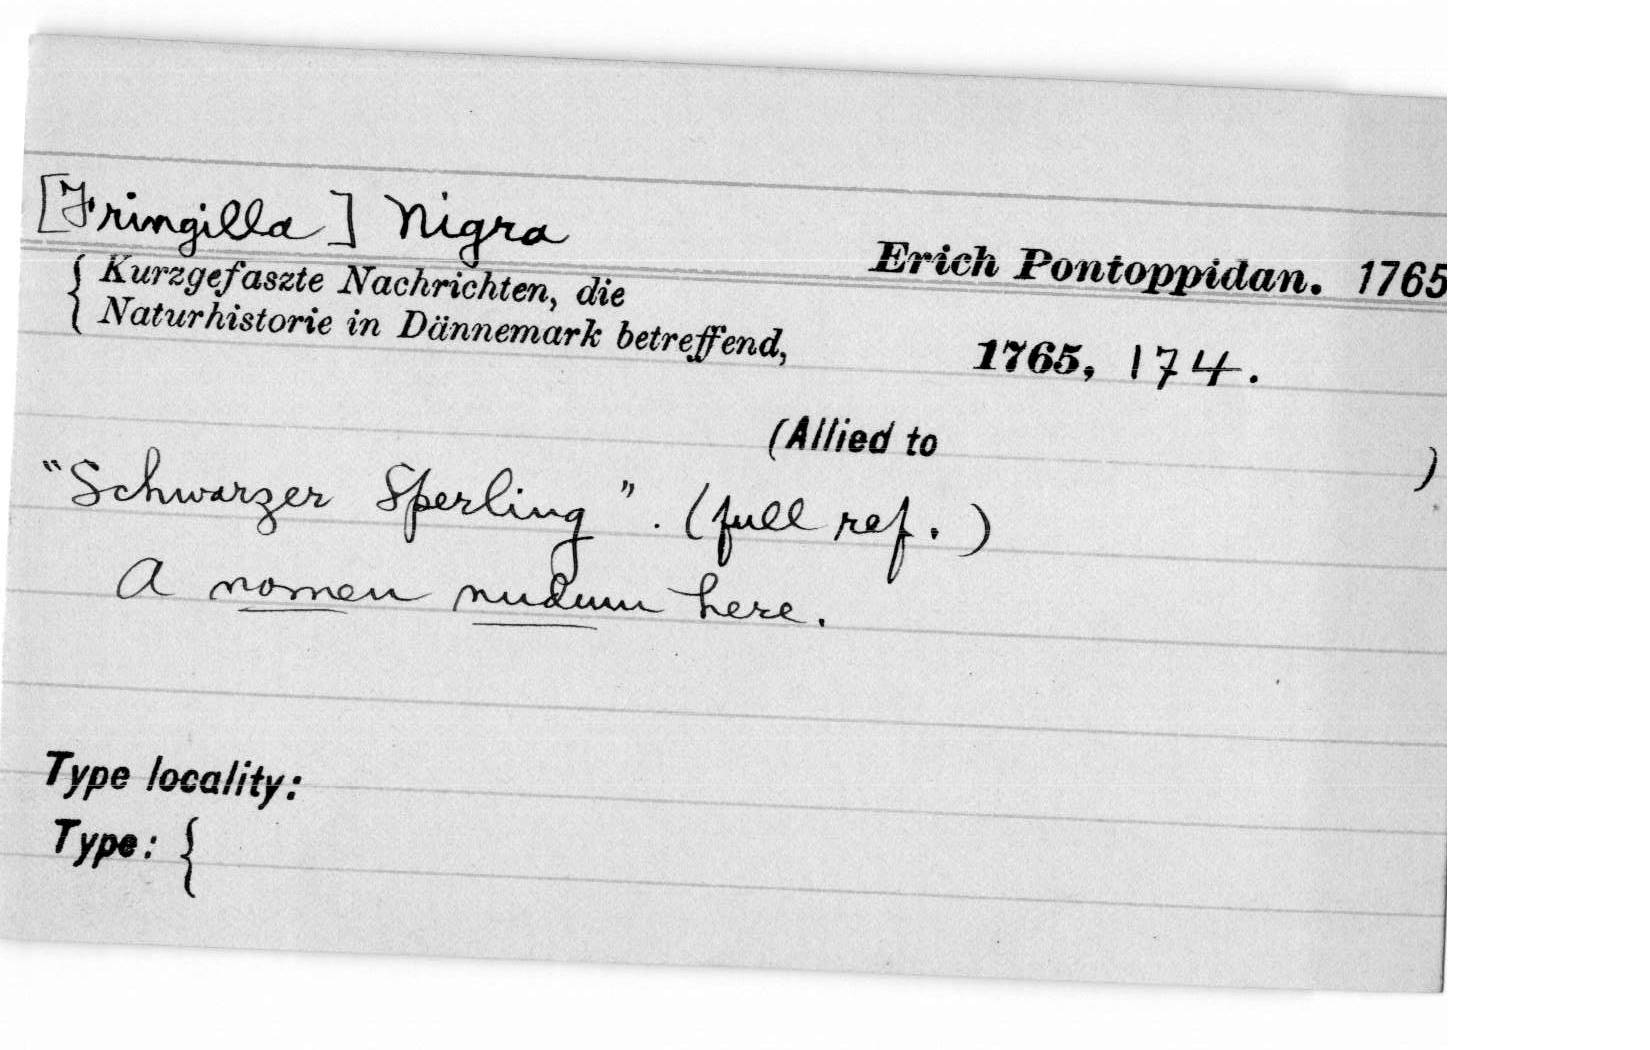 [Fringilla] Nigra
Erich Pontoppidan. 1765
{ Kurzgefaszte Nachrichten, die
Naturhistorie in Dännemark betreffend, 1765, 174.
(Allied to )
"Schwarzer Sperling". (full ref.)
A nomen nudum here.
Type locality:
Type: {